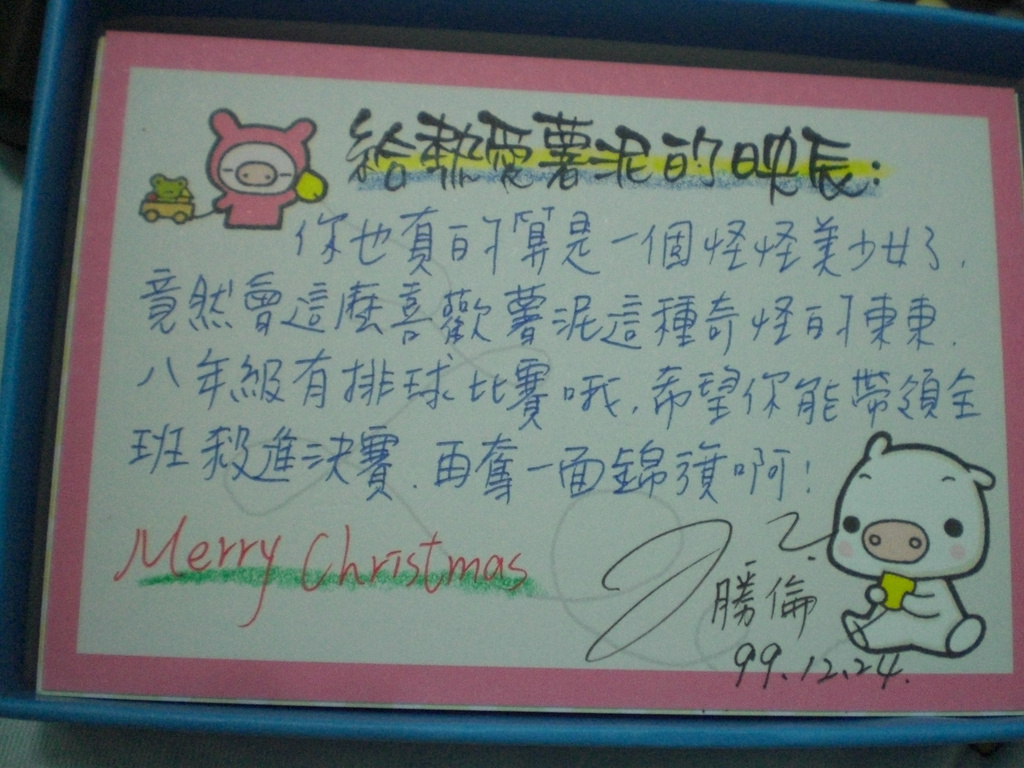 給熱愛薯泥的映辰:
你也真的算是一個怪怪美少女了,
竟然會這麼喜歡薯泥這種奇怪的東東.
八年級有排球比賽哦,希望你能帶領全
班殺進決賽.再奪一面錦旗啊!
Merry Christmas
勝倫
99.12.24.